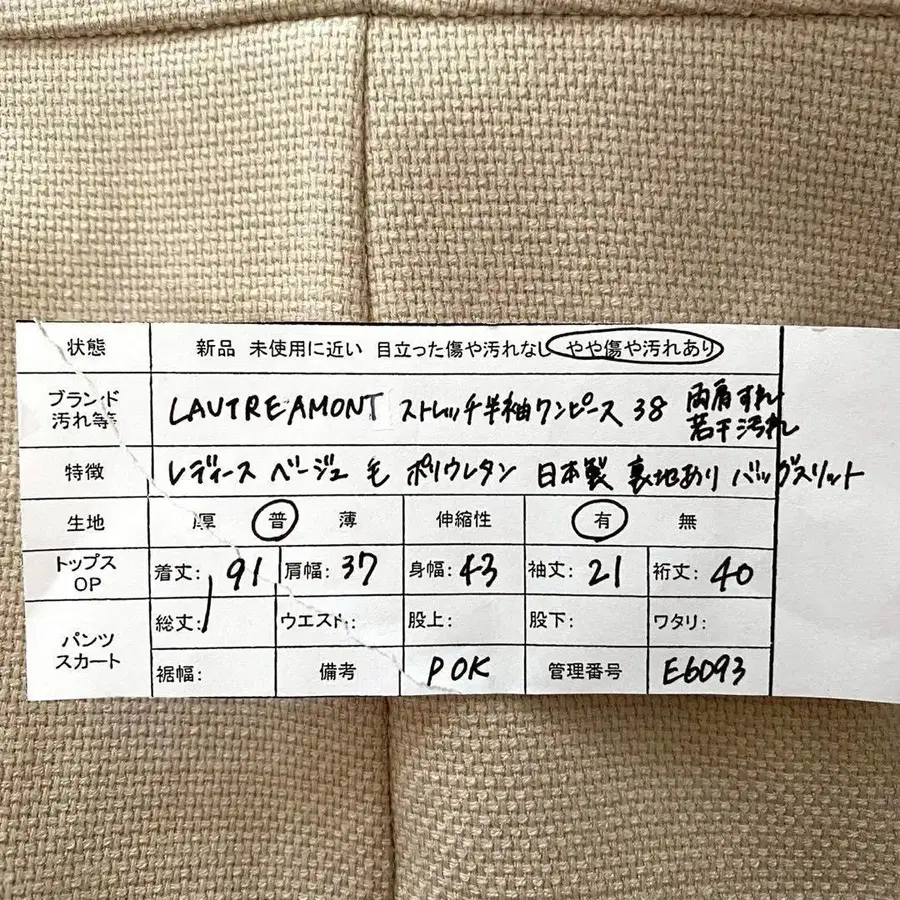 状態 新品 未使用に近い 目立った傷や汚れなし やや傷や汚れあり
ブランド 汚れ等 LAUTREAMONT ストレッチ半袖ワンピース 38 両肩すれ 若干汚れ
特徴 レディース ベージュ 毛 ポリウレタン 日本製 裏地あり バックスリット
生地 厚 普 薄 伸縮性 有 無
トップス OP 着丈: 91 肩幅: 37 身幅: 43 袖丈: 21 裄丈: 40
パンツ スカート 総丈: ウエスト: 股上: 股下: ワタリ:
裾幅: 備考 POK 管理番号 E6093